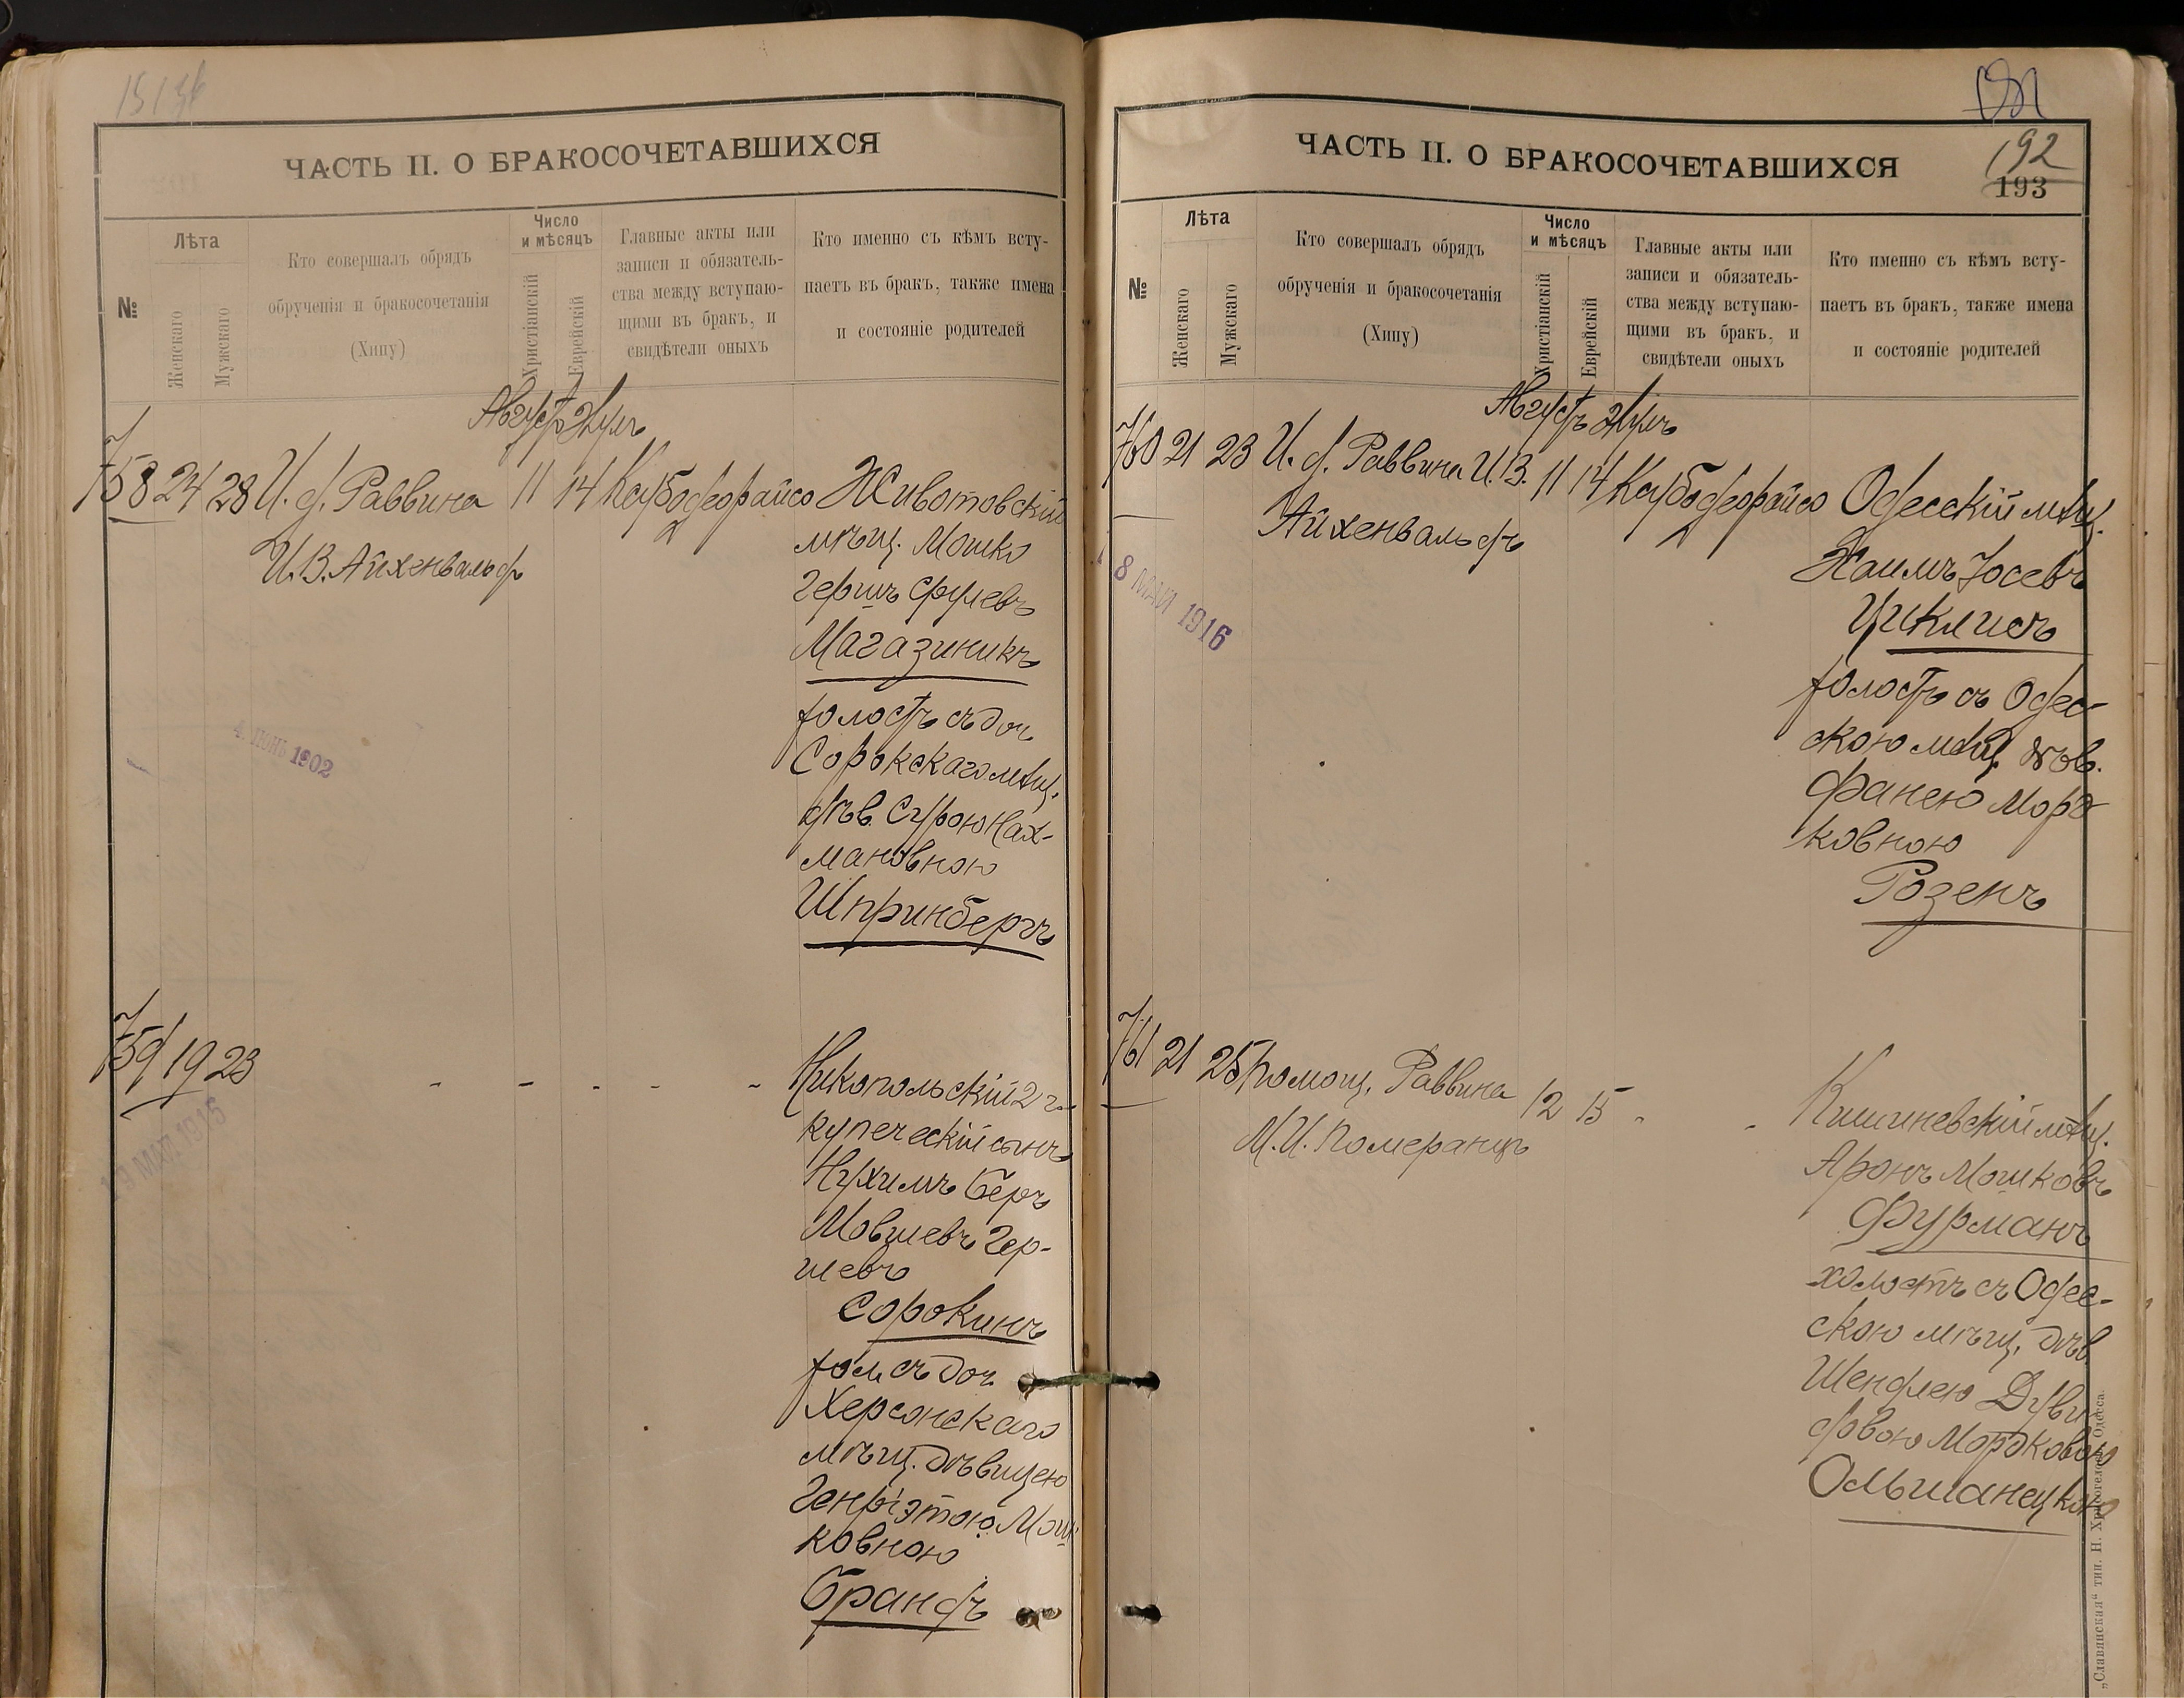 ЧАСТЬ II. О БРАКОСОЧЕТАВШИХСЯ
№
Лѣта
Женскаго
Мужскаго
Кто совершалъ обрядъ
обрученія и бракосочетанія
(Хипу)
Число
и мѣсяцъ
Христіанскій
Еврейскій
Главные акты или
записи и обязатель-
ства между вступаю-
щими въ бракъ, и
свидѣтели оныхъ
Кто именно съ кѣмъ всту-
паетъ въ бракъ, также имена
и состояніе родителей
Августъ
758 24 28 И. д. Раввина 11 14 Животовскій
И. В. Айхенвальдъ
мѣщ. Мошко
Гершъ Срулевъ
Магазиникъ
холостъ съ доч.
Сорокскаго мѣщ.
дѣв. Сурою Нах-
мановною
Шпринбергъ
4. ІЮНЬ 1902
759 19 23 - - - - -
Никопольскій 2 г.
купеческій сынъ
Нухимъ Беръ
Мовшевъ Гер-
шевъ
Сорокинъ
хол. съ доч.
Херсонскаго
мѣщ. дѣвицею
Генріэтою Мош
ковною
Брандъ
МАЯ 1915
ЧАСТЬ II. О БРАКОСОЧЕТАВШИХСЯ
192
193
№
Лѣта
Женскаго
Мужскаго
Кто совершалъ обрядъ
обрученія и бракосочетанія
(Хипу)
Число
и мѣсяцъ
Христіанскій
Еврейскій
Главные акты или
записи и обязатель-
ства между вступаю-
щими въ бракъ, и
свидѣтели оныхъ
Кто именно съ кѣмъ всту-
паетъ въ бракъ, также имена
и состояніе родителей
Августъ
760 21 23 И. д. Раввина И. В. 11 14 Одесскій мѣщ.
Айхенвальдъ
8 МАЙ 1916
Хаимъ Іосевъ
Циклисъ
холостъ съ Одес-
скою мѣщ. дѣв.
Фанею Морд
ковною
Розенъ
761 21 25 Помощ. Раввина 12 15 - -
М. И. Померанцъ
Кишиневскій мѣщ.
Аронъ Мошковъ
Фурманъ
холостъ съ Одес-
скою мѣщ. дѣв.
Шендлею Дуви
довою Мордковою
Ольшанецкою
„Славянская“ тип. Н. Хрисогелосъ, Одесса.